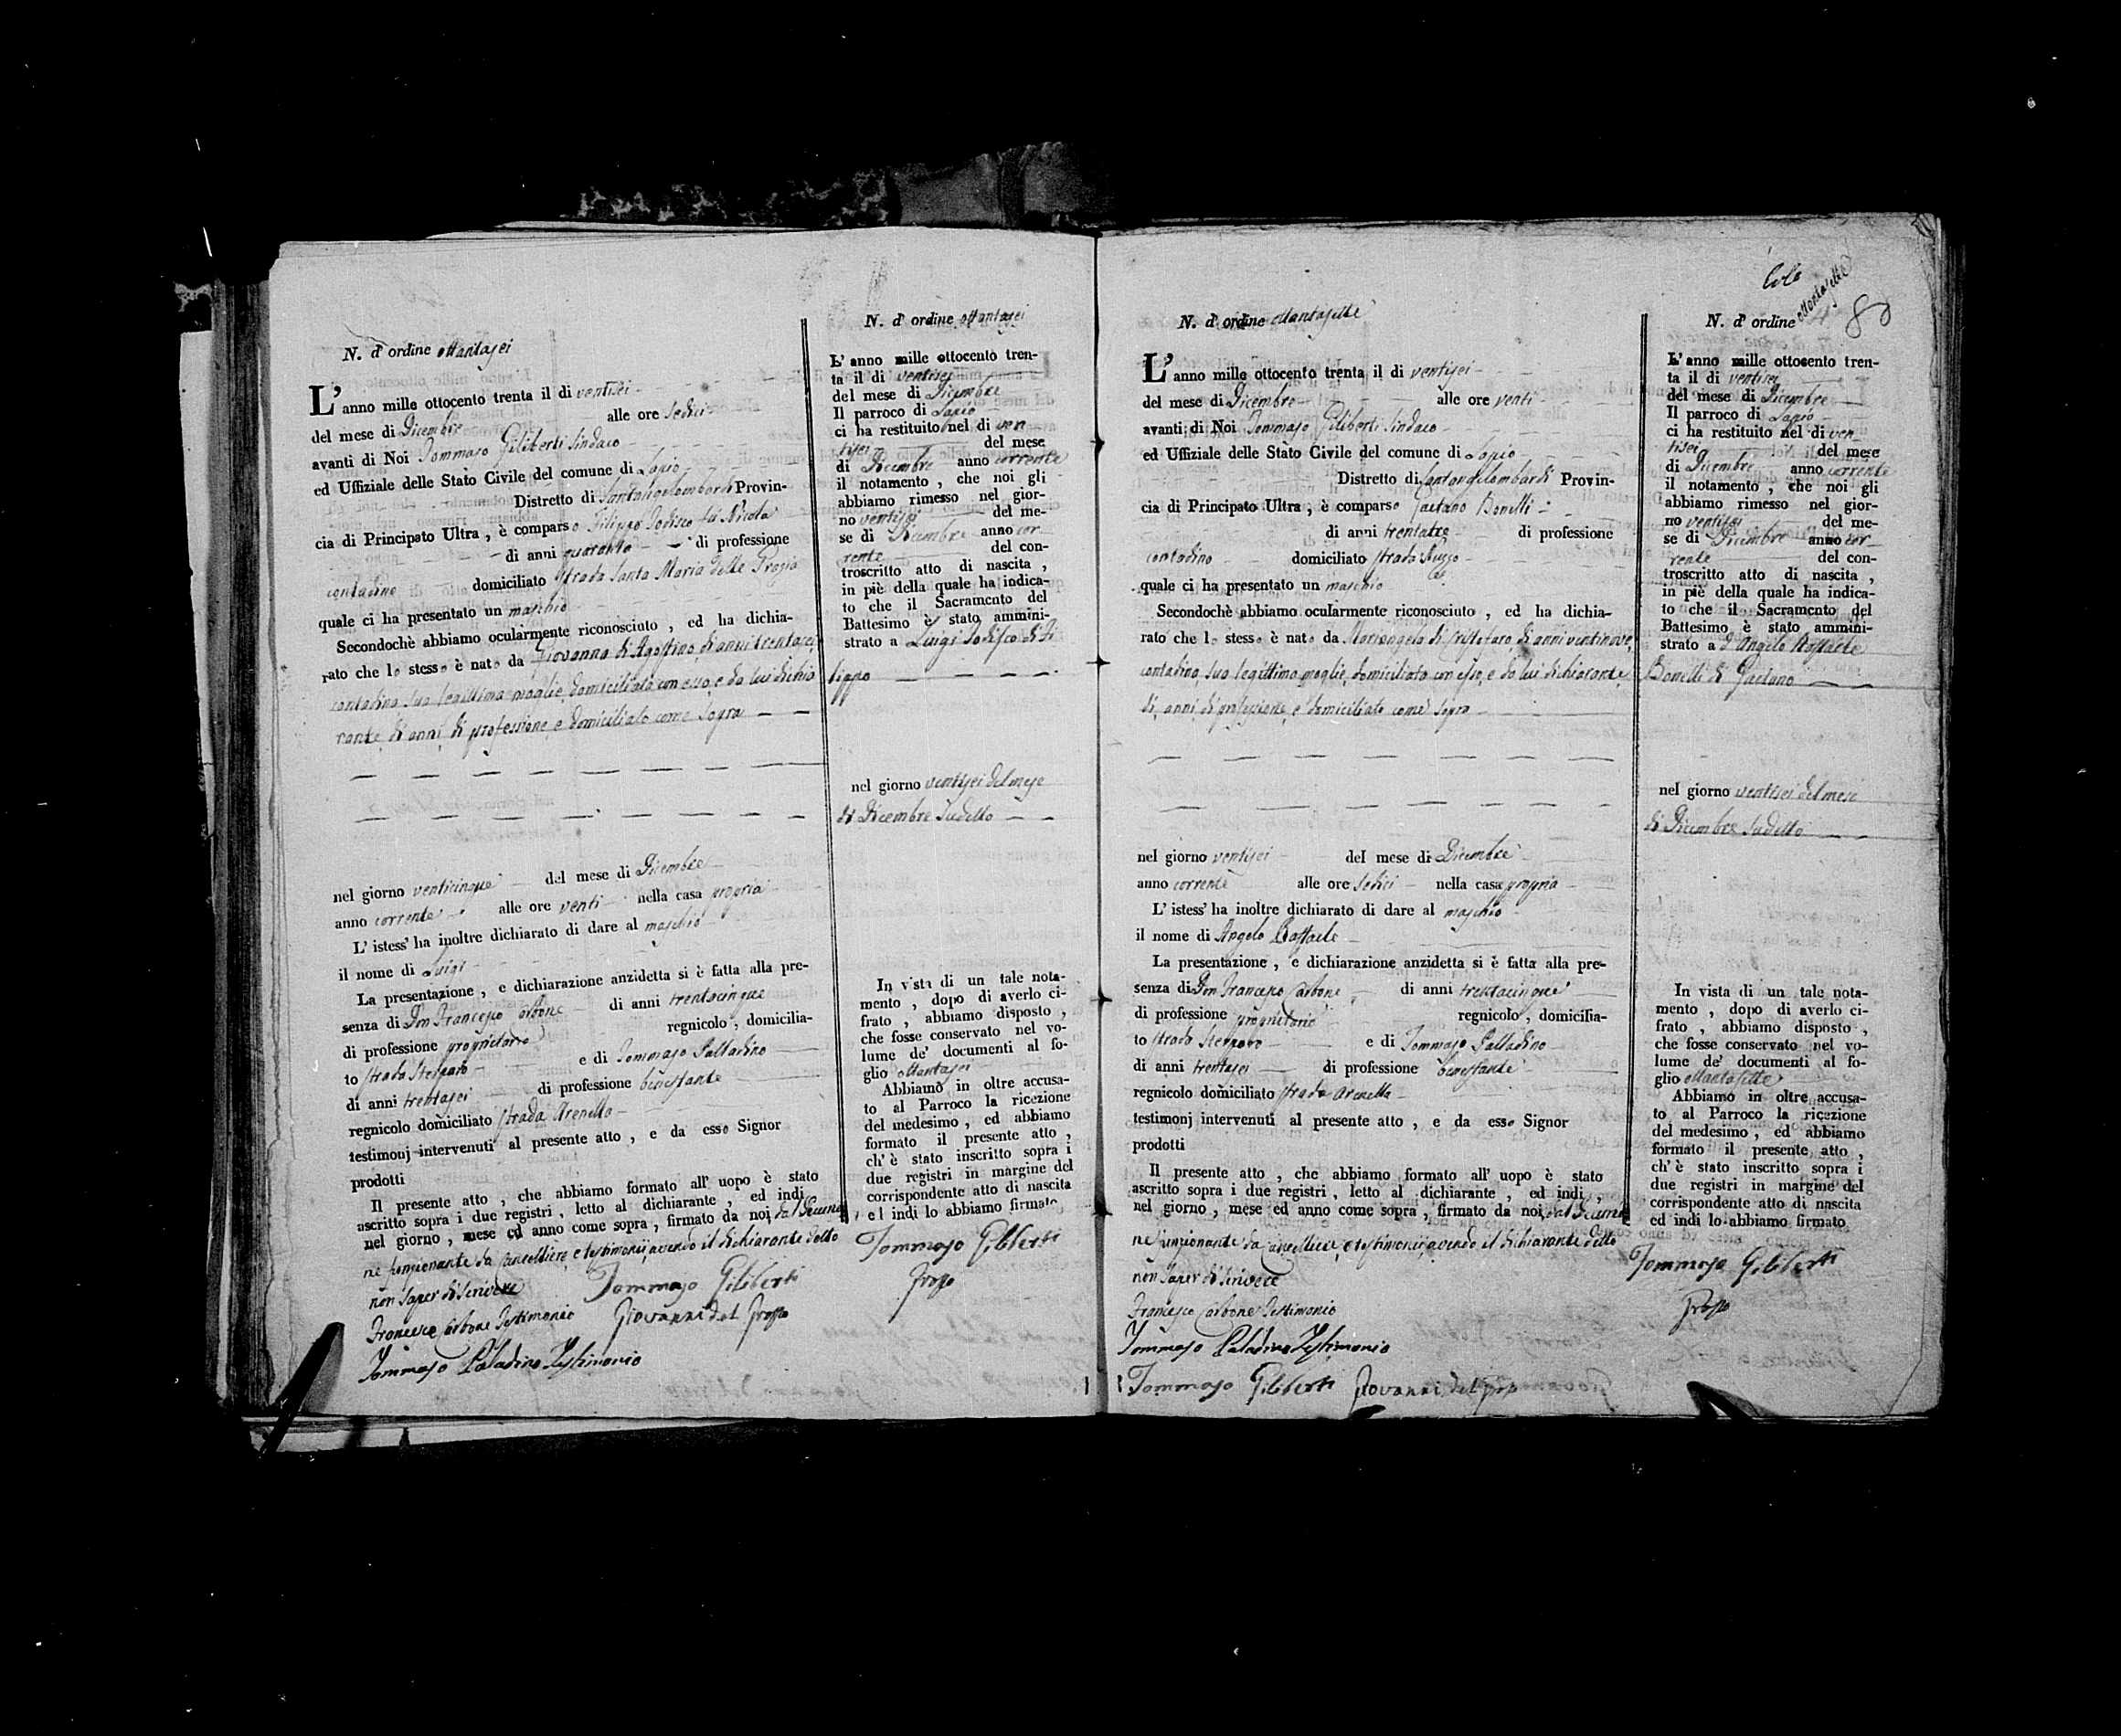 N. d' ordine ottantasei
L' anno mille ottocento trenta il di ventisei
del mese di Dicembre alle ore sedici
avanti di Noi Tommaso Giliberti Sindaco
ed Uffiziale delle Stato Civile del comune di Lapio
Distretto di Santangelombardi Provin-
cia di Principato Ultra , è comparso Filippo Iodisco di Nicola
di anni quaranta di professione
contadino domiciliato strada Santa Maria delle Grazia
quale ci ha presentato un maschio
Secondochè abbiamo ocularmente riconosciuto , ed ha dichia-
rato che lo stesso è nato da Giovanna di Agostino, di anni trentasei,
contadina sua legittima moglie, domiciliata con esso, e da lui dichia
rante, di anni, di professione, e domiciliato come sopra
nel giorno venticinque del mese di Dicembre
anno corrente alle ore venti nella casa propria
L' istess' ha inoltre dichiarato di dare al maschio
il nome di Luigi
La presentazione , e dichiarazione anzidetta si è fatta alla pre-
senza di Don Francesco Carbone di anni trentacinque
di professione proprietario regnicolo , domicilia-
to strada e di Tommaso Palladino
di anni trentasei di professione benestante
regnicolo domiciliato strada Arenella
testimonj intervenuti al presente atto , e da esso Signor
prodotti
Il presente atto , che abbiamo formato all' uopo è stato
ascritto sopra i due registri , letto al dichiarante , ed indi
nel giorno , mese ed anno come sopra , firmato da noi, dal Decurio
ne funzionante da Cancelliere, e testimonii, avendo il dichiarante detto
non saper di scrivere Tommaso Giliberti
Francesco Carbone Testimonio Giovanni del Grosso
Tommaso Paladino Testimonio
N. d' ordine ottantasei
L' anno mille ottocento tren-
ta il di ventisei
del mese di Dicembre
Il parroco di Lapio
ci ha restituito nel di ven
tisei del mese
di Dicembre anno corrente
il notamento , che noi gli
abbiamo rimesso nel gior-
no ventisei del me-
se di Dicembre anno cor
rente del con-
troscritto atto di nascita ,
in piè della quale ha indica-
to che il Sacramento del
Battesimo è stato ammini-
strato a Luigi Iodisco di Fi
lippo
nel giorno ventisei del mese
di Dicembre sudetto
In vista di un tale nota-
mento , dopo di averlo ci-
frato , abbiamo disposto ,
che fosse conservato nel vo-
lume de' documenti al fo-
glio ottantasei
Abbiamo in oltre accusa-
to al Parroco la ricezione
del medesimo , ed abbiamo
formato il presente atto ,
ch' è stato inscritto sopra i
due registri in margine del
corrispondente atto di nascita
, e l indi lo abbiamo firmato
Tommaso Giliberti
Grosso
N. d' ordine ottantasette
L' anno mille ottocento trenta il di ventisei
del mese di Dicembre alle ore venti
avanti di Noi Tommaso Giliberti Sindaco
ed Uffiziale delle Stato Civile del comune di Lapio
Distretto di Santangelombardi Provin-
cia di Principato Ultra , è comparso Gaetano Bonelli
di anni trentatre di professione
contadino domiciliato strada
quale ci ha presentato un maschio
Secondochè abbiamo ocularmente riconosciuto , ed ha dichia-
rato che lo stesso è nato da Mariangela di Cristofaro, di anni ventinove,
contadina, sua legittima moglie, domiciliata con esso, e da lui dichiarante,
di anni, di professione, e domiciliato come sopra
nel giorno ventisei del mese di Dicembre
anno corrente alle ore sedici nella casa propria
L' istess' ha inoltre dichiarato di dare al maschio
il nome di Angelo Raffaele
La presentazione , e dichiarazione anzidetta si è fatta alla pre-
senza di Don Francesco Carbone di anni trentacinque
di professione proprietario regnicolo , domicilia-
to strada e di Tommaso Palladino
di anni trentasei di professione benestante
regnicolo domiciliato strada Arenella
testimonj intervenuti al presente atto , e da esso Signor
prodotti
Il presente atto , che abbiamo formato all' uopo è stato
ascritto sopra i due registri , letto al dichiarante , ed indi ,
nel giorno , mese ed anno come sopra , firmato da noi, dal Decurio
ne funzionante da Cancelliere, e testimonii, avendo il dichiarante detto
non saper di scrivere
Francesco Carbone Testimonio
Tommaso Paladino Testimonio
Tommaso Giliberti Giovanni del Grosso
80
N. d' ordine ottantasette
L' anno mille ottocento tren-
ta il di ventisei
del mese di Dicembre
Il parroco di Lapio
ci ha restituito nel di ven
tisei del mese
di Dicembre anno corrente
il notamento , che noi gli
abbiamo rimesso nel gior-
no ventisei del me-
se di Dicembre anno cor
rente del con-
troscritto atto di nascita ,
in piè della quale ha indica-
to che il Sacramento del
Battesimo è stato ammini-
strato a d'Angelo Raffaele
Bonelli di Gaetano
nel giorno ventisei del mese
di Dicembre sudetto
In vista di un tale nota-
mento , dopo di averlo ci-
frato , abbiamo disposto ,
che fosse conservato nel vo-
lume de' documenti al fo-
glio ottantasette
Abbiamo in oltre accusa-
to al Parroco la ricezione
del medesimo , ed abbiamo
formato il presente atto ,
ch' è stato inscritto sopra i
due registri in margine del
corrispondente atto di nascita
ed indi lo abbiamo firmato
Tommaso Giliberti
Grosso